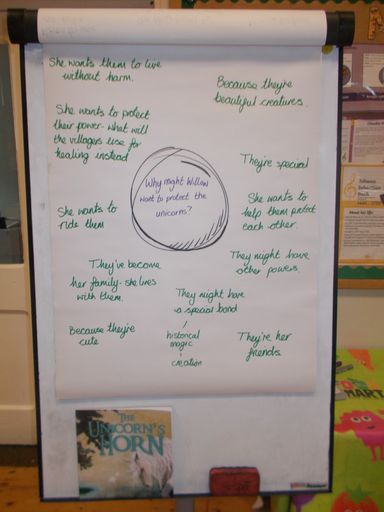 She wants them to live
without harm.
Because they're
beautiful creatures.
She wants to protect
their power - what will
the villagers use for
healing instead
They're special
Why might Willow
want to protect the
unicorns?
She wants to
ride them
She wants to
help them protect
each other.
They've become
her family - she lives
with them.
They might have
other powers
They might have
a special bond
historical
magic
creation
Because they're
cute
They're her
friends.
THE
UNICORN'S
HORN